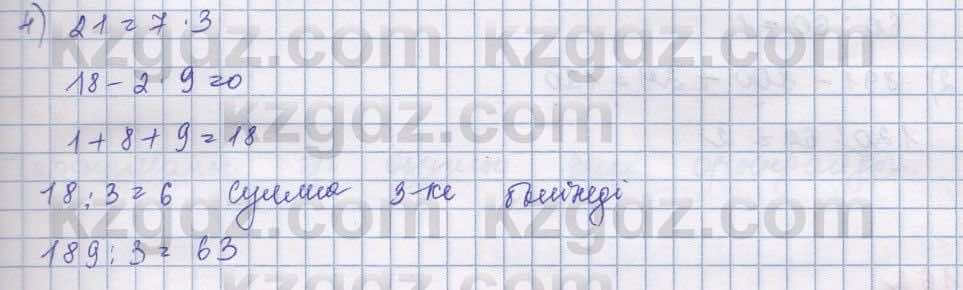 4) 21 = 7 · 3
18 - 2 · 9 = 0
1 + 8 + 9 = 18
18 : 3 = 6 сумма 3-ке бөлінеді
189 : 3 = 63
kzgdz.com kzgdz.com
kzgdz.com
kzgdz.com kzgdz.com